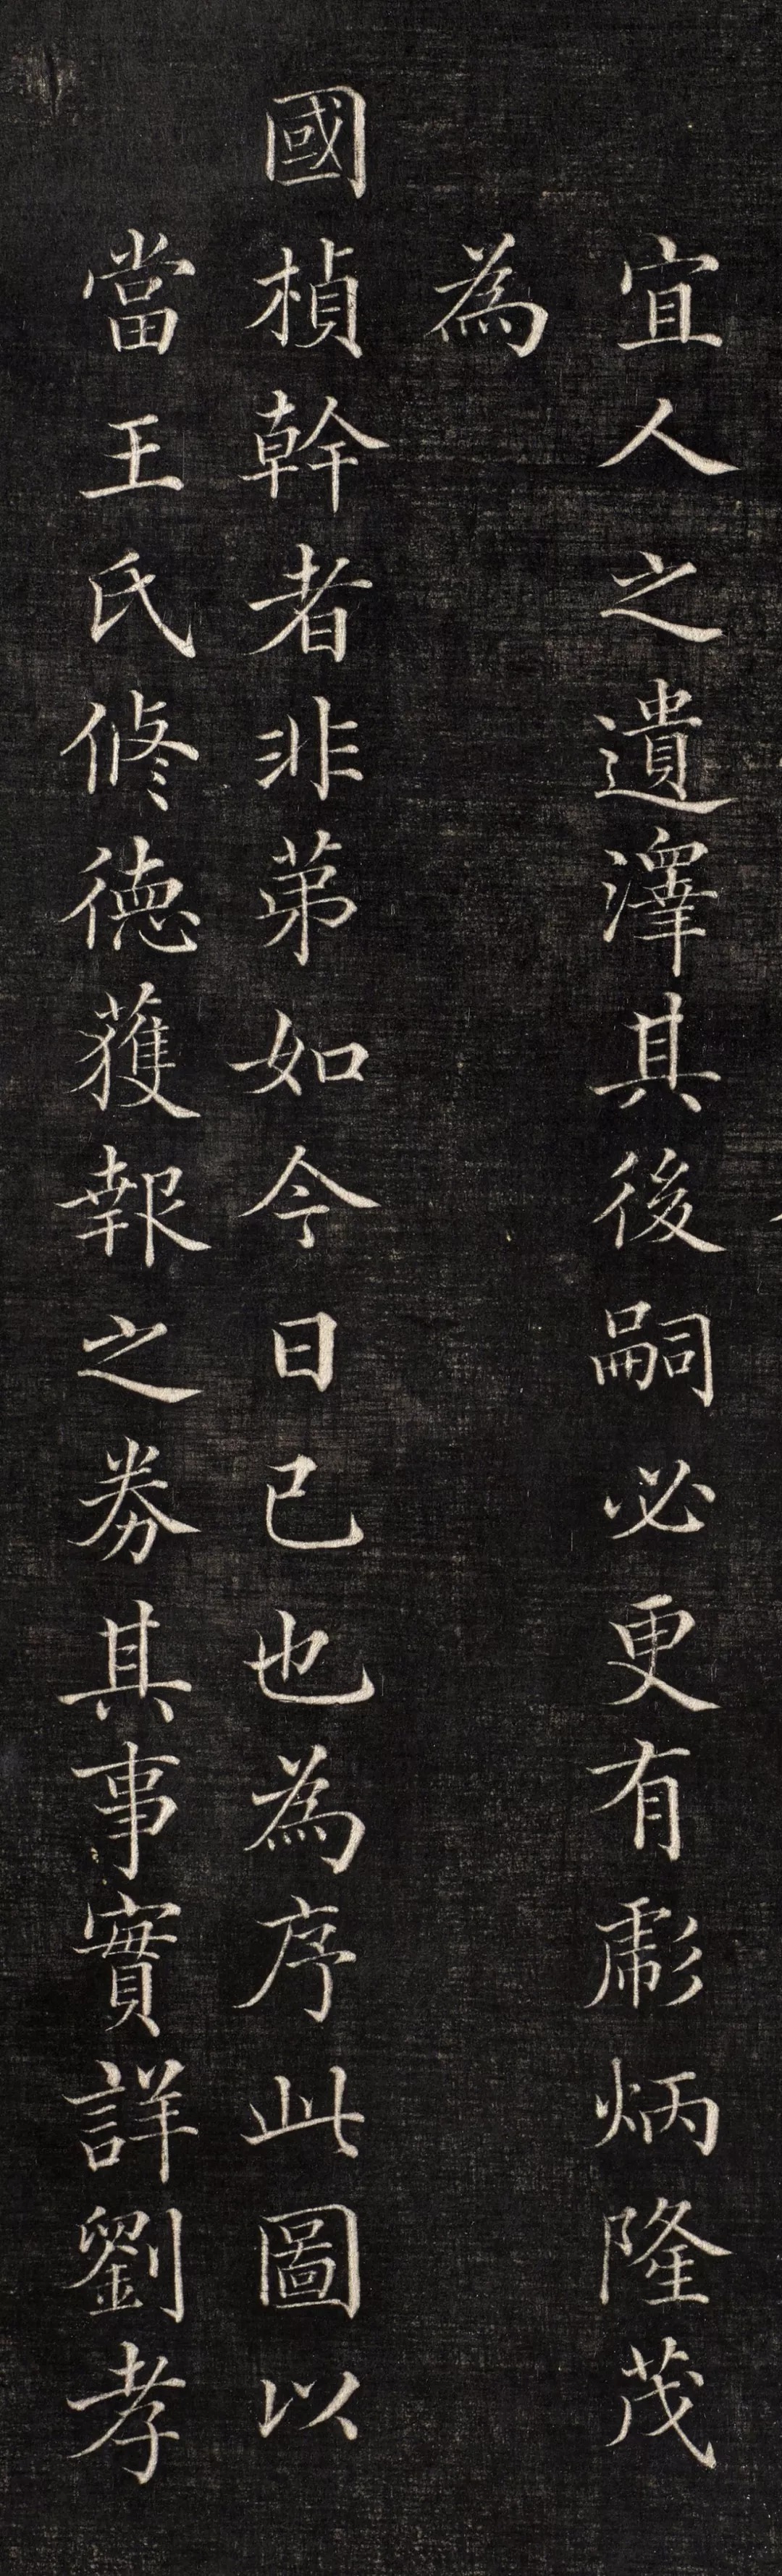 宜人之遺澤其後嗣必更有彪炳隆茂
為
國楨幹者非苐如今日已也為序此圖以
當王氏修德獲報之券其事實詳劉孝